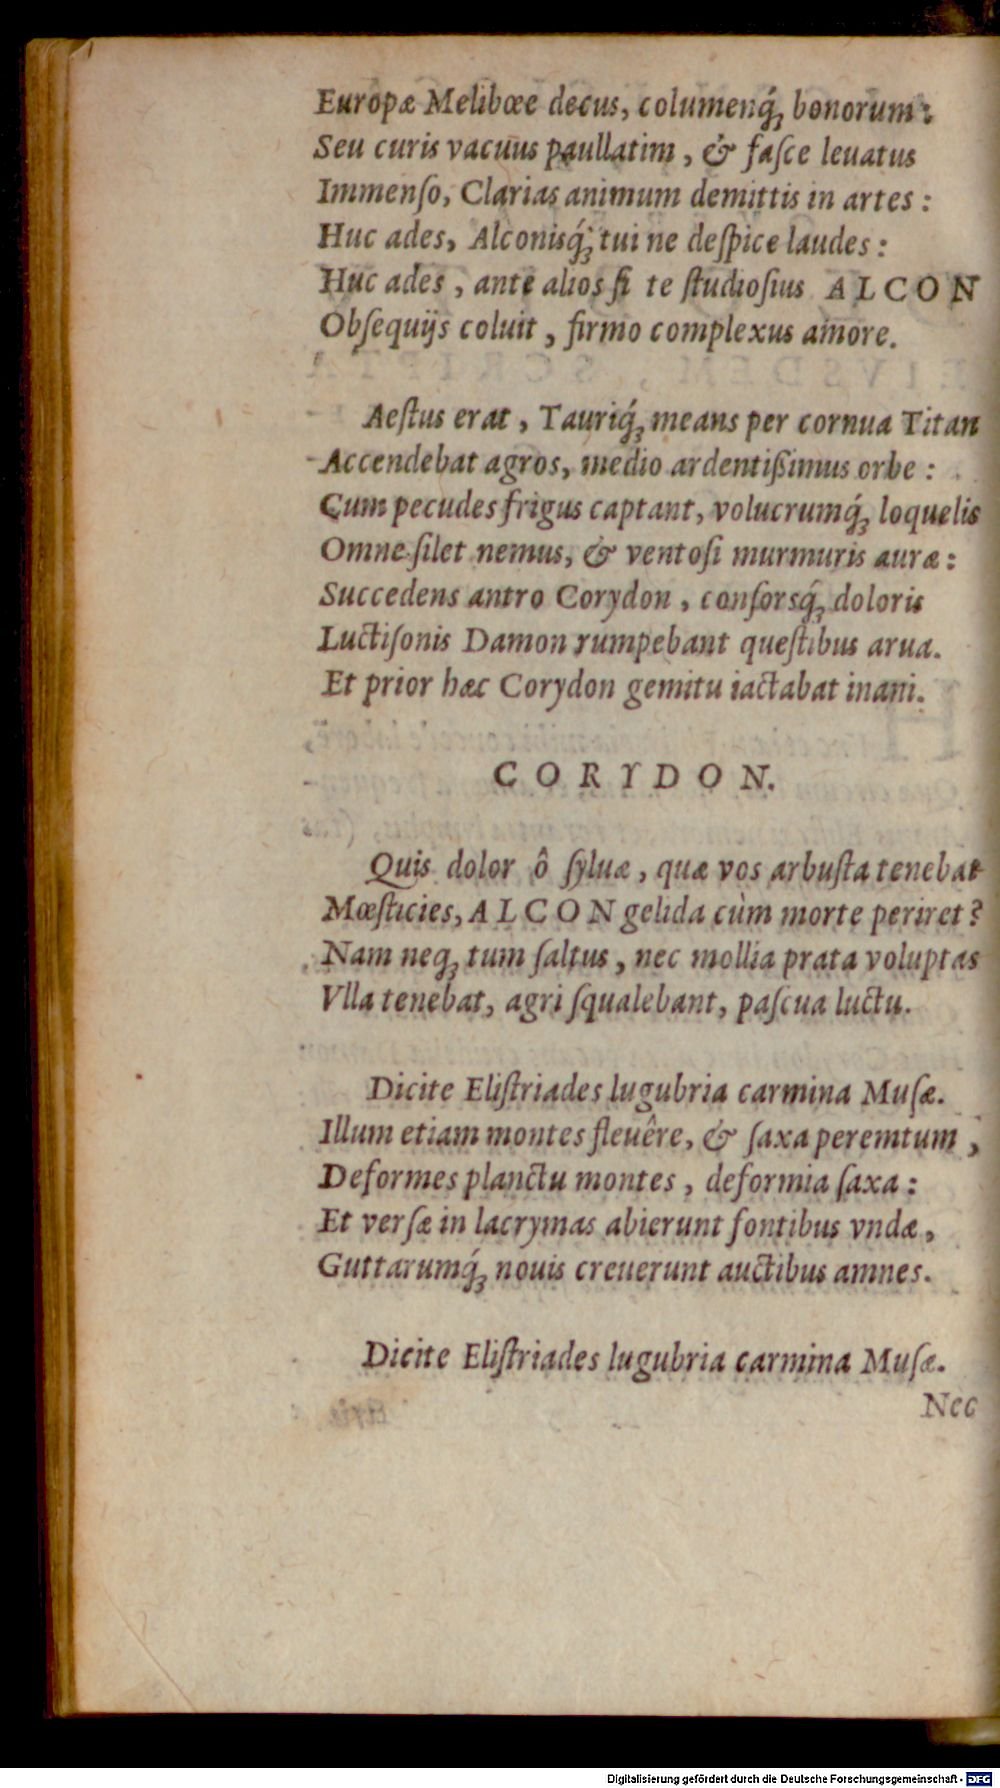 Europæ Melibœe decus, columenq́; bonorum:
Seu curis vacuus paullatim, & faſce leuatus
Immenſo, Clarias animum demittis in artes:
Huc ades, Alconisq́; tui ne deſpice laudes:
Huc ades, ante alios ſi te ſtudioſius ALCON
Obſequijs coluit, firmo complexus amore.
Aeſtus erat, Tauriq́; means per cornua Titan
Accendebat agros, medio ardentißimus orbe:
Cum pecudes frigus captant, volucrumq́; loquelis
Omne ſilet nemus, & ventoſi murmuris auræ:
Succedens antro Corydon, conſorsq́; doloris
Luctiſonis Damon rumpebant queſtibus arua.
Et prior hæc Corydon gemitu iactabat inani.
CORYDON.
Quis dolor ô ſyluæ, quæ vos arbuſta tenebat
Mœſticies, ALCON gelida cùm morte periret?
Nam neq; tum ſaltus, nec mollia prata voluptas
Vlla tenebat, agri ſqualebant, paſcua luctu.
Dicite Eliſtriades lugubria carmina Muſæ.
Illum etiam montes fleuêre, & ſaxa peremtum,
Deformes planctu montes, deformia ſaxa:
Et verſæ in lacrymas abierunt fontibus vndæ,
Guttarumq́; nouis creuerunt auctibus amnes.
Dicite Eliſtriades lugubria carmina Muſæ.
Nec
Digitalisierung gefördert durch die Deutsche Forschungsgemeinschaft - DFG